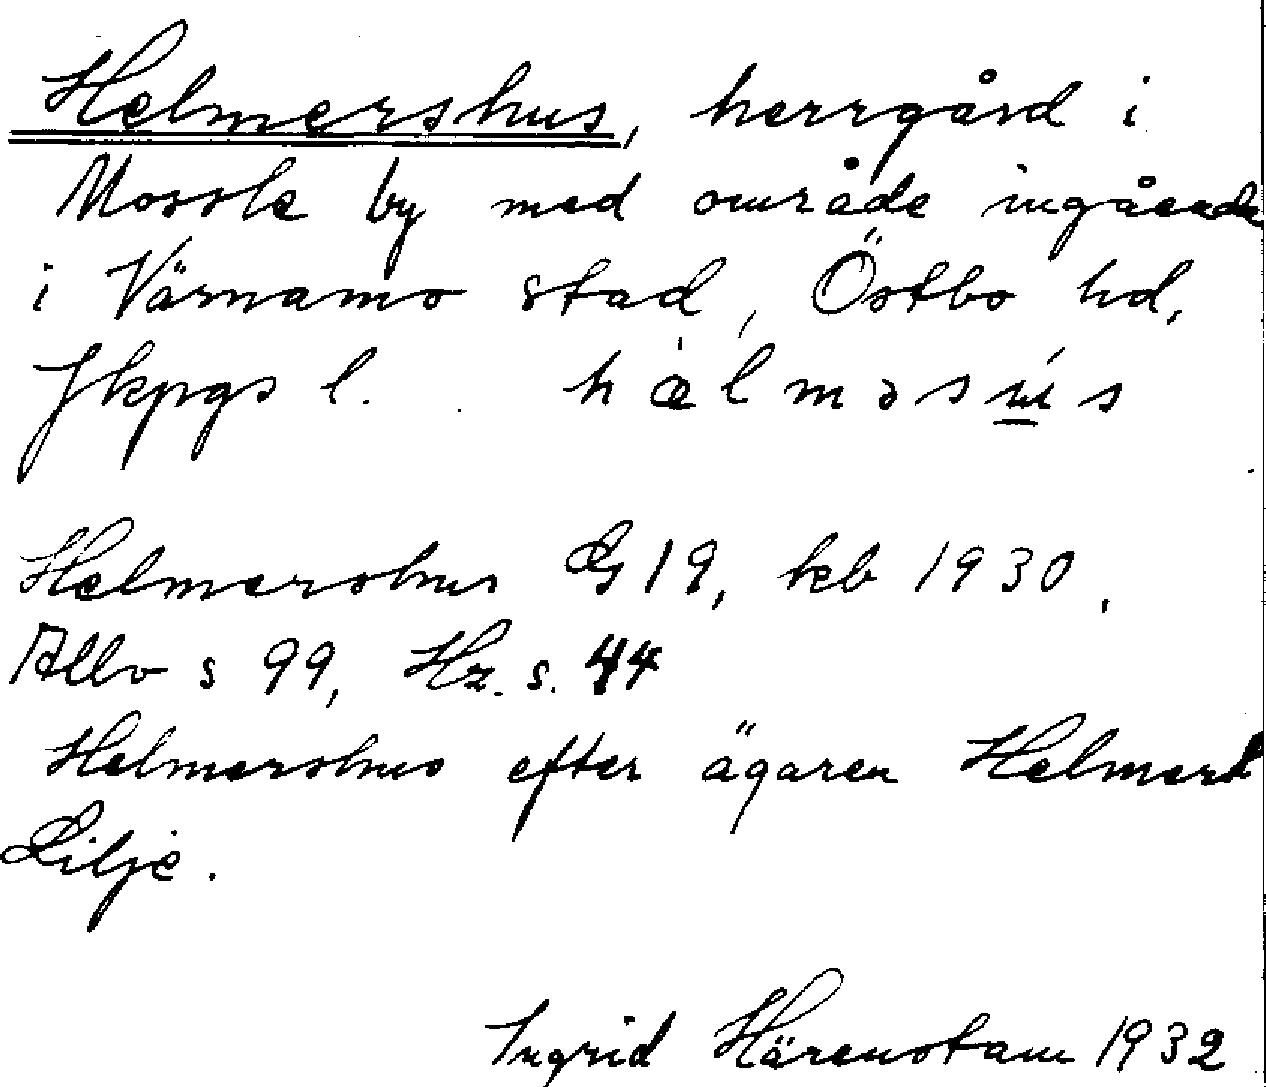 Helmershus, herrgård i
Mossle by med område ingående
i Värnamo stad, Östbo hd,
Jkpgs l. hælməsus
Helmershus G19, kb 1930,
Allvo s 99, Hz. s. 44
Helmershus efter ägaren Helmert
Lilje.
Ingrid Härenstam 1932